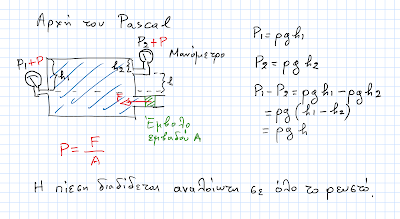 Αρχή του Pascal
P₂+P
Μανόμετρο
P₁+P
h₁
h₂
h
F
Έμβολο
εμβαδού A
P = F/A
P₁ = ρgh₁
P₂ = ρgh₂
P₁ - P₂ = ρgh₁ - ρgh₂
= ρg(h₁ - h₂)
= ρgh
Η πίεση διαδίδεται αναλοίωτη σε όλο το ρευστό.